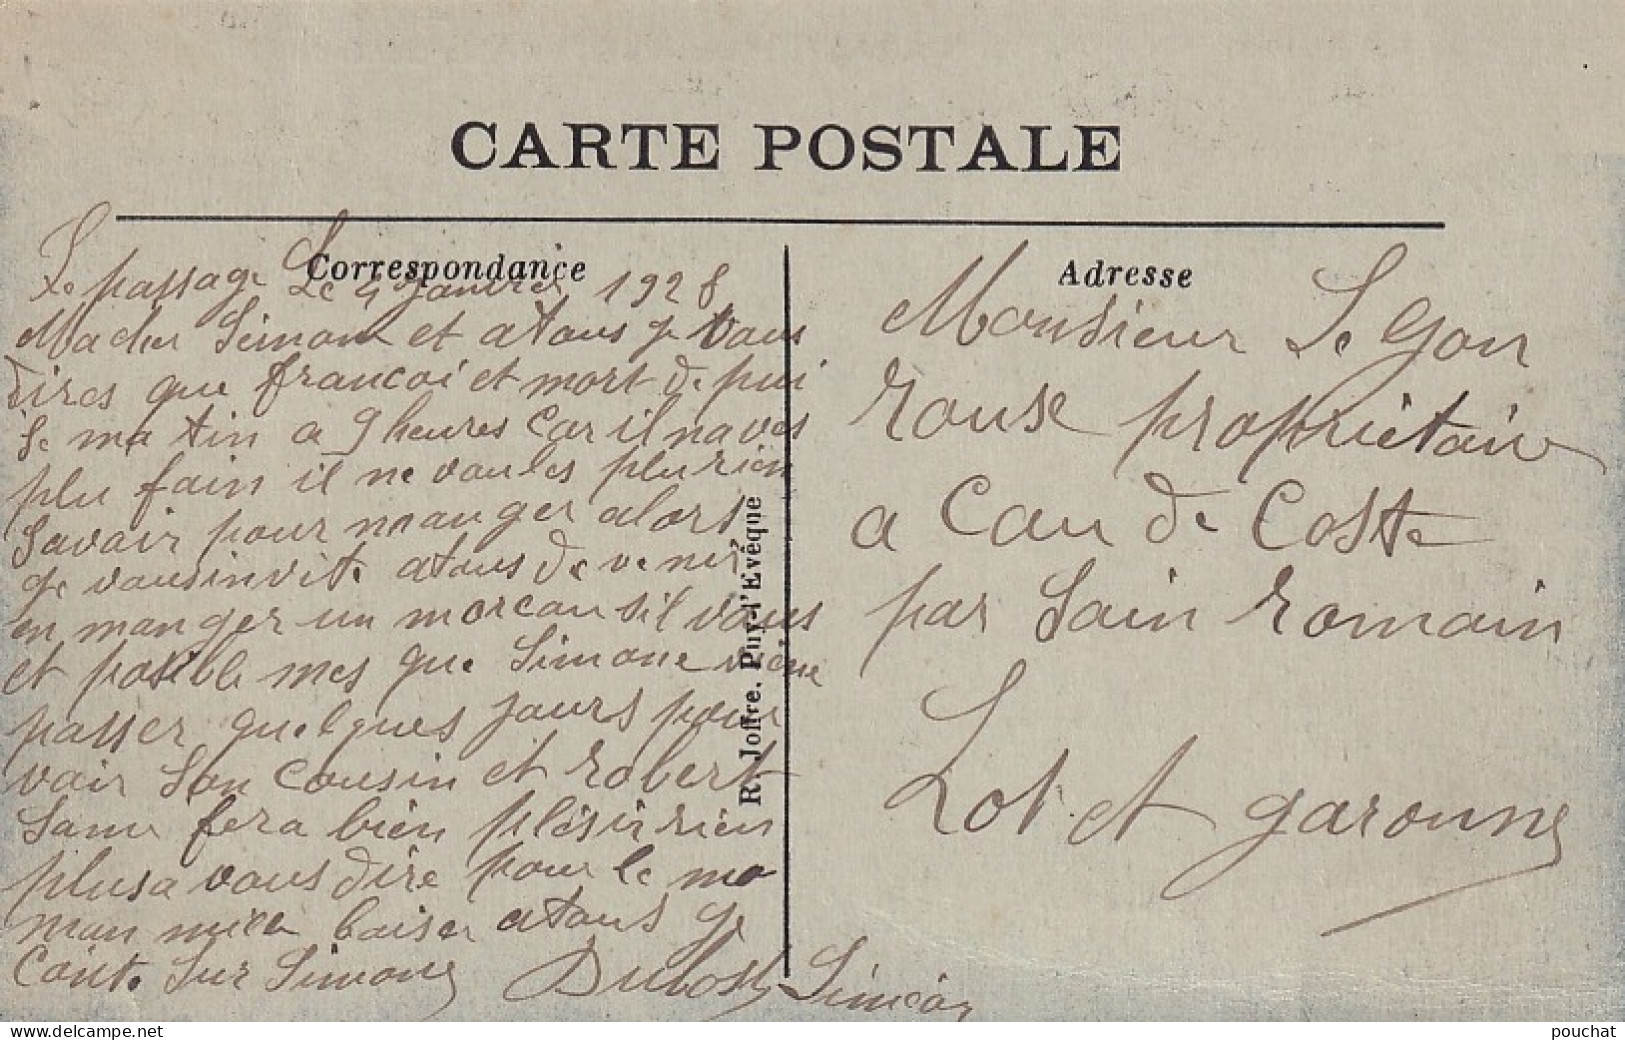 CARTE POSTALE
Correspondance
Le passage Le 4 Janvier 1928
Ma cher Simone et a tous je vous
dires que francoi et mort de pui
se matin a 9 heures car il naves
plu fain il ne voules plu rien
savoir pour manger alors
ge vous invite a tous de venir
en manger un morcau sil vous
et posible mes que Simone viene
passer quelques jours pour
voir son cousin et robert
sam fera bien plésir rien
plus a vous dire pour le mo
man mille baiser a tous ge
conte sur Simone Dubosq Siméon
R. Joffre. Puy-l'Evêque
Adresse
Monsieur Le gou
rouse propriétair
a Cau de Coste
par Sain romain
Lot et garonne
www.delcampe.net
pouchat